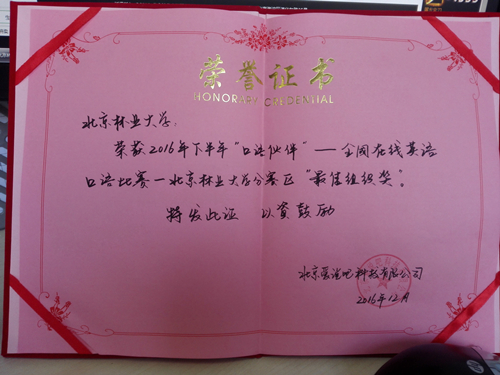 荣誉证书
HONORARY CREDENTIAL
北京林业大学:
荣获2016年下半年“口语伙伴”——全国在线英语
口语比赛—北京林业大学分赛区“最佳组织奖”。
特发此证 以资鼓励
科技有限公司
2016年12月